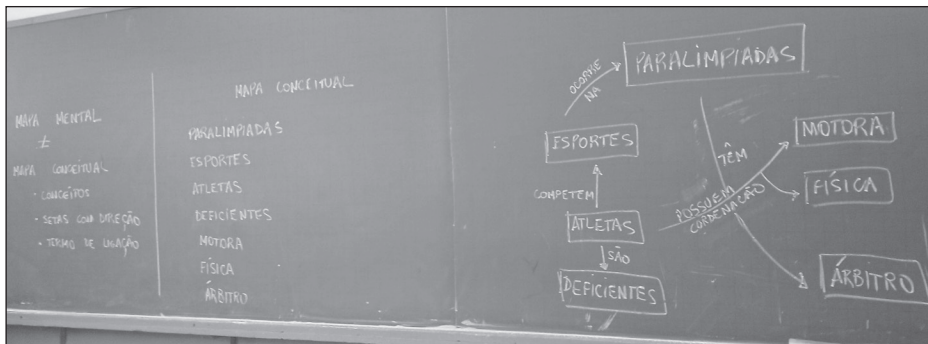 MAPA MENTAL
≠
MAPA CONCEITUAL
- CONCEITOS
- SETAS COM DIREÇÃO
- TERMO DE LIGAÇÃO
MAPA CONCEITUAL
PARALIMPIADAS
ESPORTES
ATLETAS
DEFICIENTES
MOTORA
FÍSICA
ÁRBITRO
PARALIMPÍADAS
OCORRE
NA
ESPORTES
COMPETEM
ATLETAS
SÃO
DEFICIENTES
TÊM
POSSUEM
CORDENACÃO
MOTORA
FÍSICA
ÁRBITRO